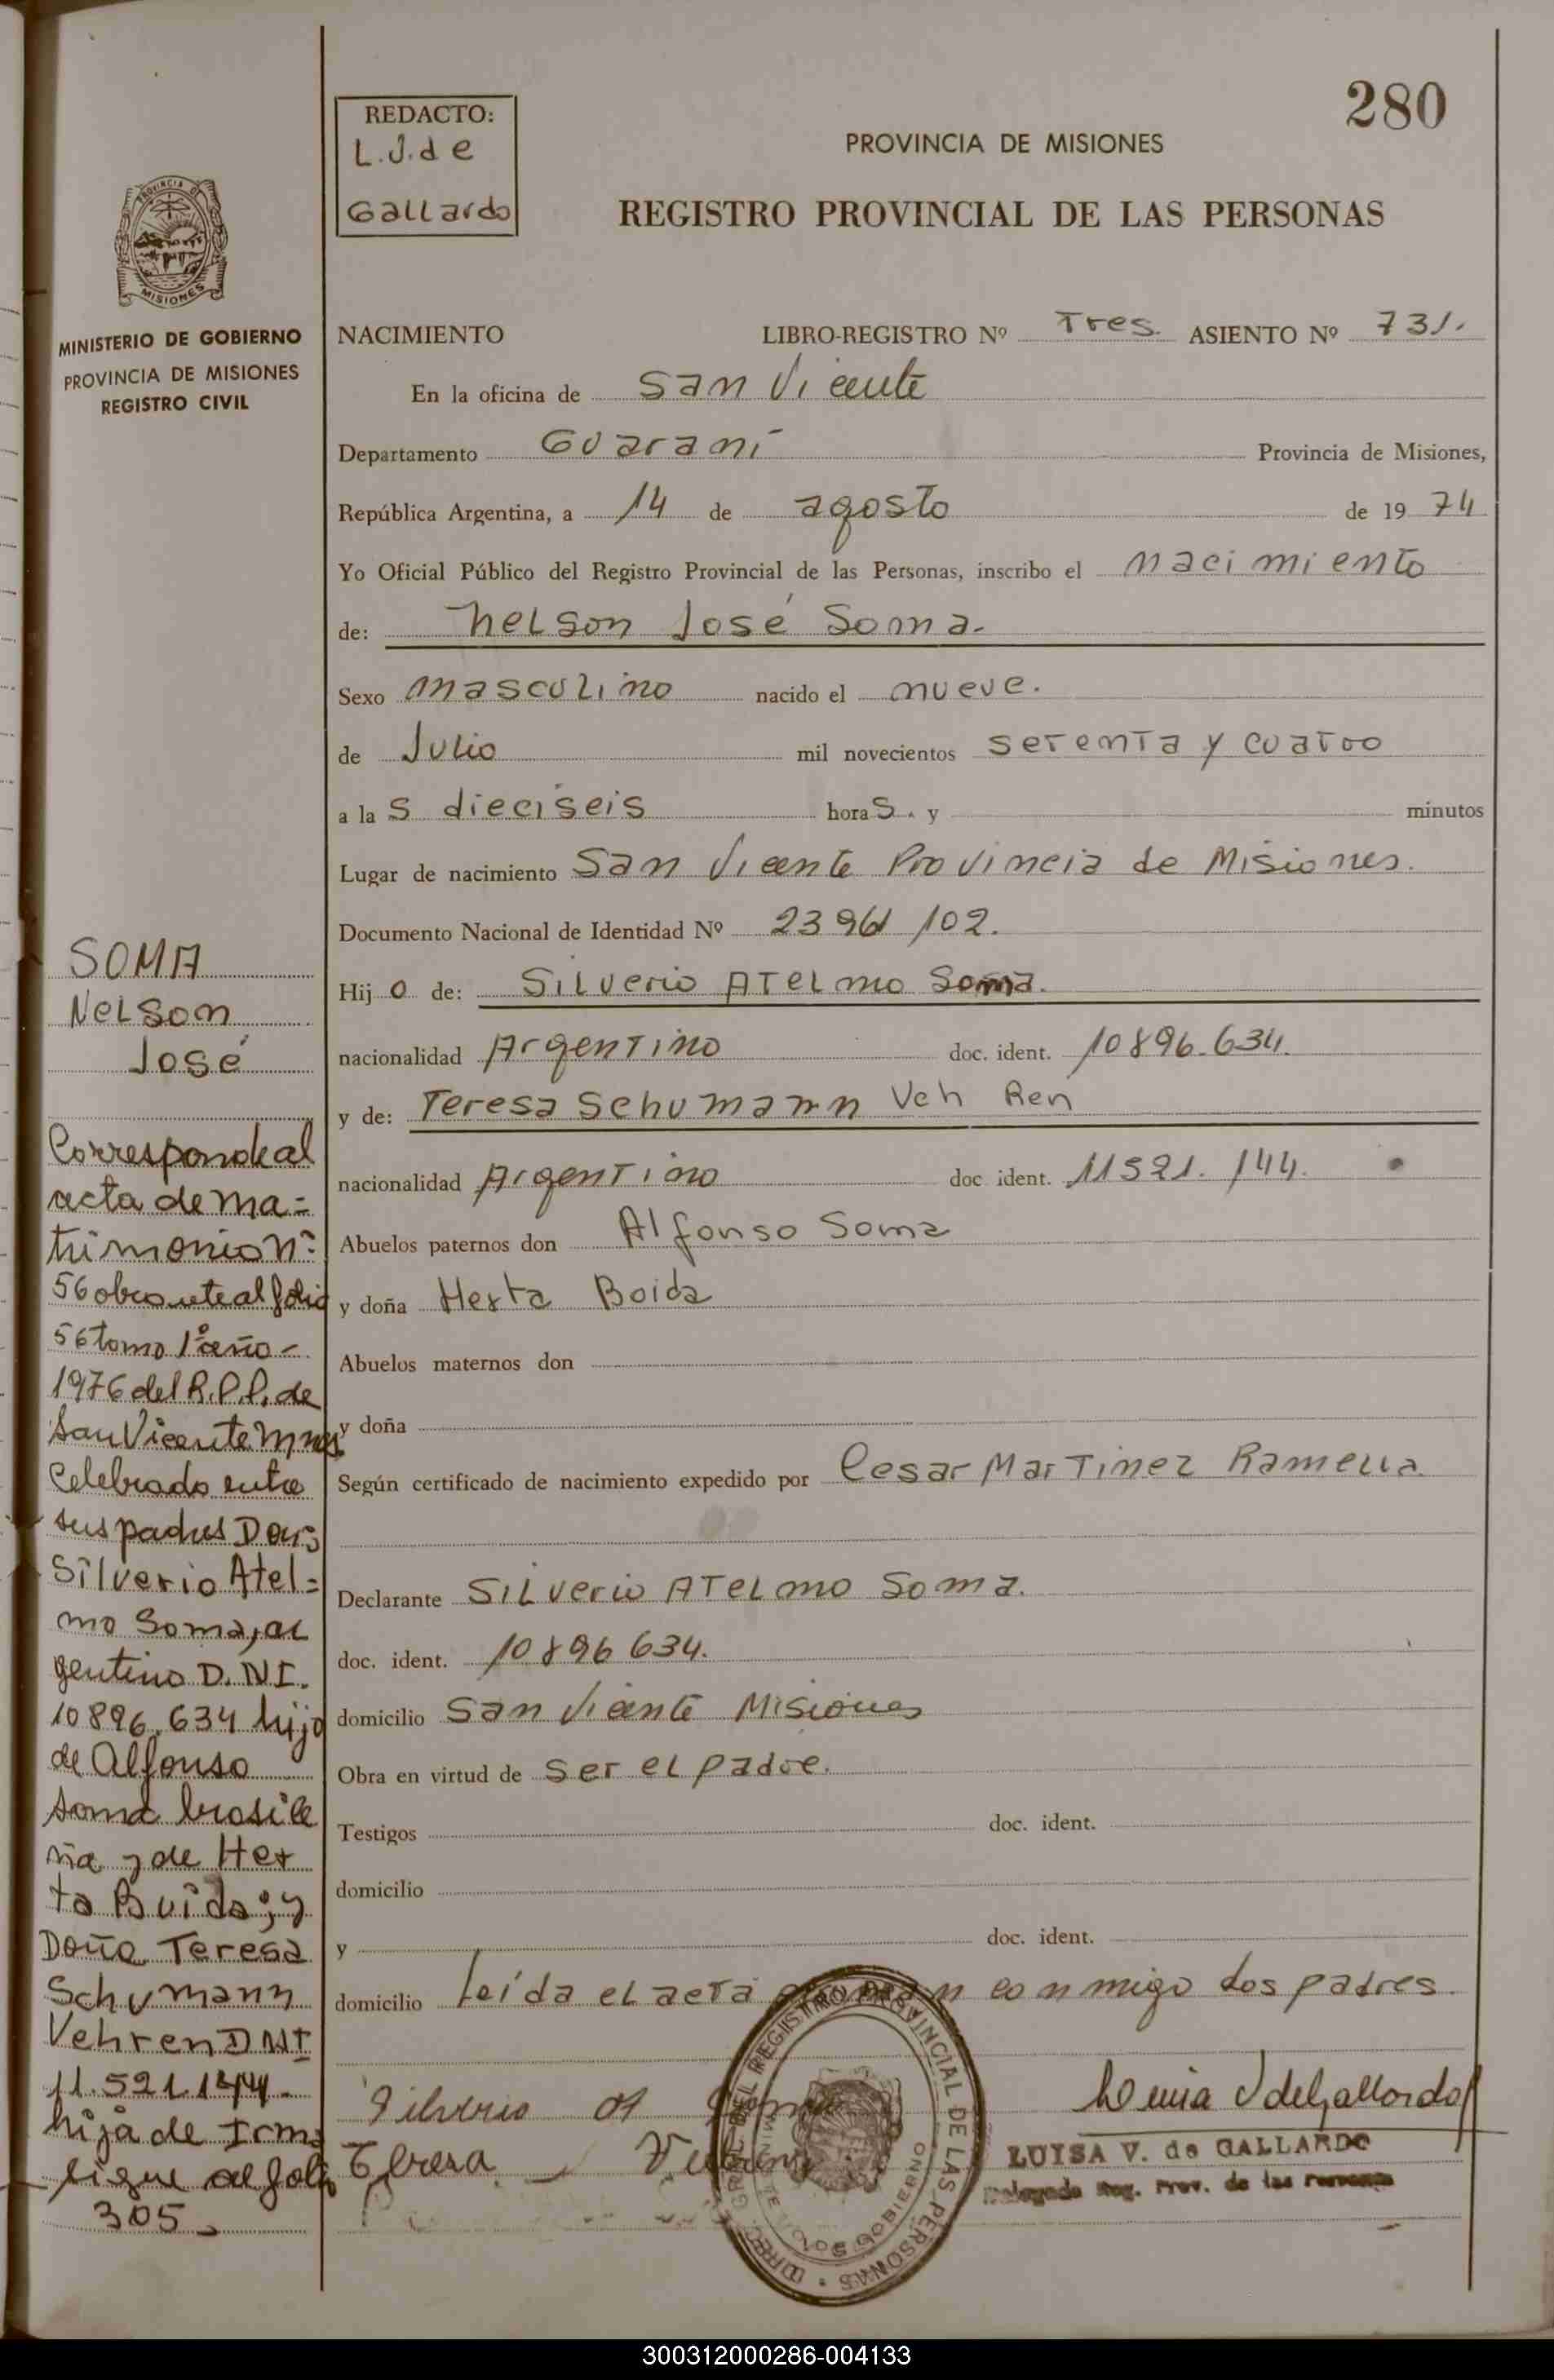 280
REDACTO:
L.J.de
Gallardo
PROVINCIA DE MISIONES
REGISTRO PROVINCIAL DE LAS PERSONAS
PROVINCIA DE
MISIONES
MINISTERIO DE GOBIERNO
PROVINCIA DE MISIONES
REGISTRO CIVIL
NACIMIENTO LIBRO-REGISTRO Nº Tres. ASIENTO Nº 731.
En la oficina de San Vicente
Departamento Guaraní Provincia de Misiones,
República Argentina, a 14 de agosto de 19 74
Yo Oficial Público del Registro Provincial de las Personas, inscribo el nacimiento
de: Nelson José Soma.
Sexo masculino nacido el nueve.
de Julio mil novecientos setenta y cuatro
a la s dieciseis hora s. y minutos
Lugar de nacimiento San Vicente Provincia de Misiones.
Documento Nacional de Identidad Nº 102.
Hij o de: Silverio Atelmo Soma.
nacionalidad Argentino doc. ident. 10896.634.
y de: Teresa Schumann Veh Ren
nacionalidad Argentino doc ident. 11521.144.
Abuelos paternos don Alfonso Soma
y doña Herta Boida
Abuelos maternos don
y doña
Según certificado de nacimiento expedido por Cesar Martinez Ramella
Declarante Silverio Atelmo Soma.
doc. ident. 10896634.
domicilio San Vicente Misiones
Obra en virtud de ser el padre.
Testigos doc. ident.
domicilio
y doc. ident.
domicilio leída el acta conmigo los padres.
Silverio
Teresa
DIREC. GRAL. DEL REGISTRO PROVINCIAL DE LAS PERSONAS
GOBIERNO
LUISA V. de GALLARDO
Delegada Reg. Prov. de las Personas
SOMA
Nelson
José
Corresponde al
acta de ma=
trimonio nº
56 obrante al folio
56 tomo 1º año-
1976 del R.P.P. de
San Vicente Mnes
Celebrado entre
sus padres Don
Silverio Atel=
mo Soma, ar
gentino D.N.I.
10896.634 hijo
de Alfonso
Soma brasile
ña y de Her
ta Buida; y
Doña Teresa
Schumann
Vehren DNI
11.521.144-
hija de Irma
sigue al folio
305-
300312000286-004133